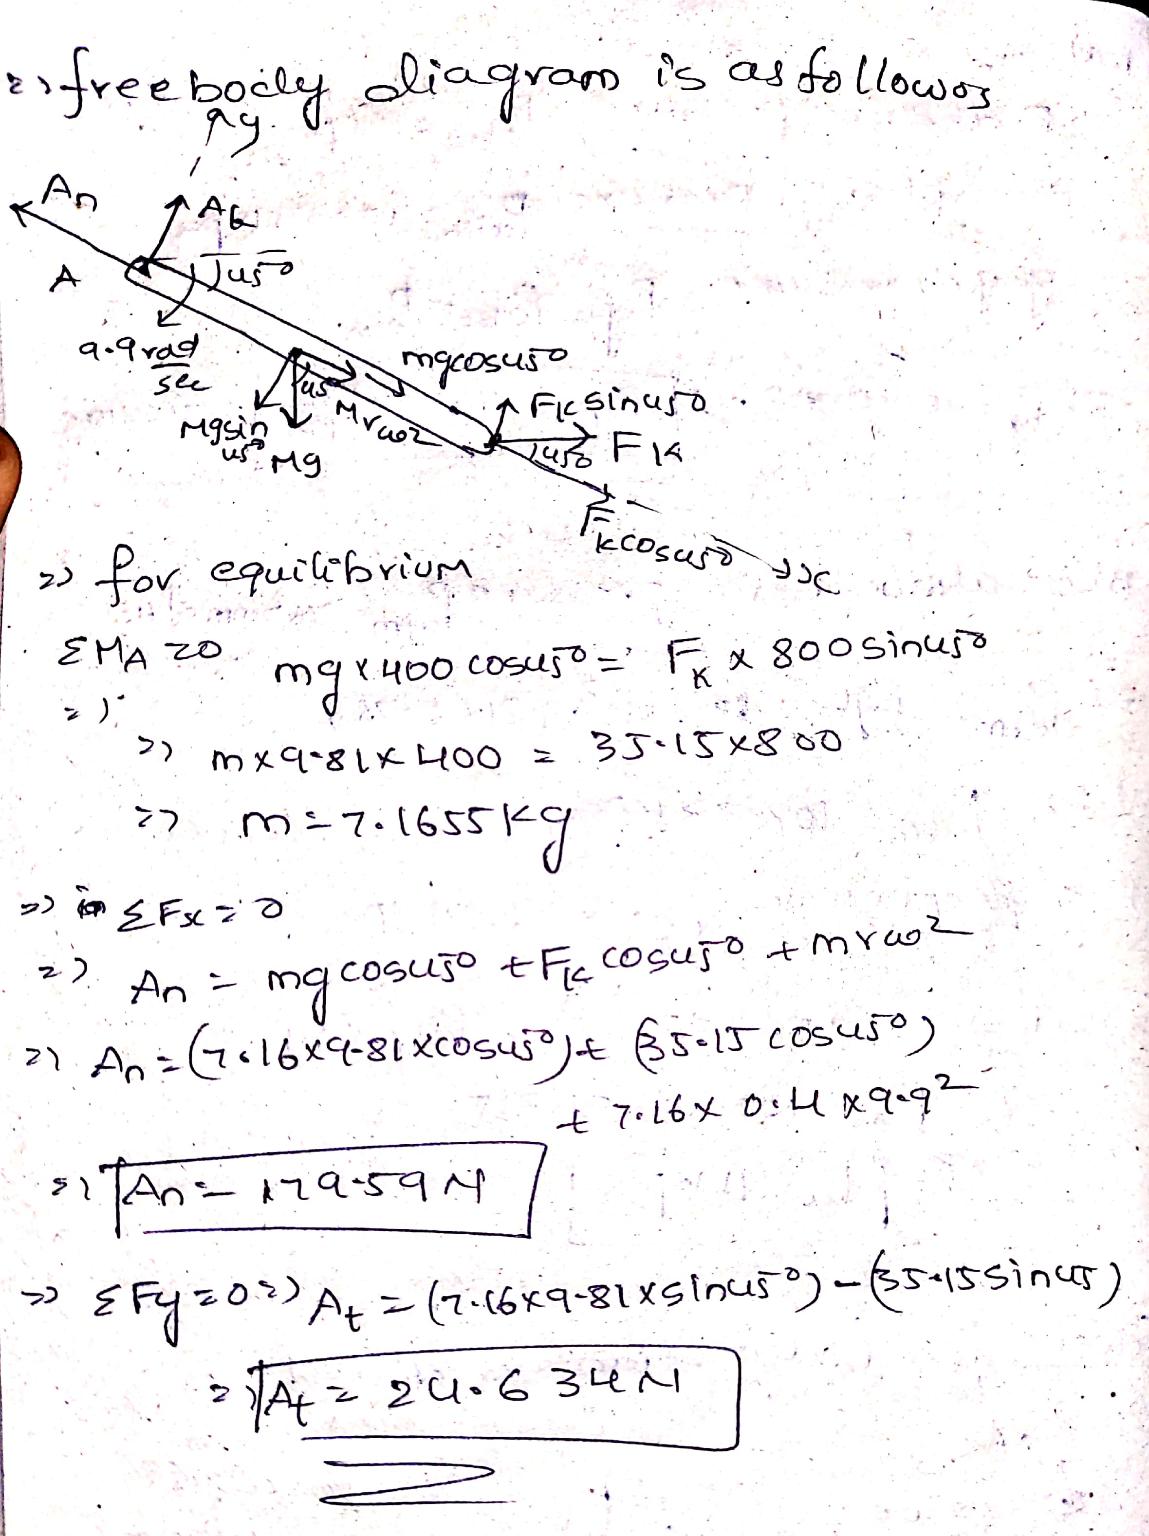 => freebody diagram is as follows
y
An
At
A
45°
9.9 rad
sec
mgcos45°
Fk sin45°
45
Mrω2
Mgsin
45°
Mg
45°
FK
Fkcos45°
x
=> for equilibrium
ΣMA = 0
=> mg x 400 cos45° = FK x 800 sin45°
=> m x 9.81 x 400 = 35.15 x 800
=> m = 7.1655 kg
=> ΣFx = 0
=> An = mg cos45° + Fk cos45° + mrω2
=> An = (7.16 x 9.81 x cos45°) + (35.15 cos45°)
+ 7.16 x 0.4 x 9.9 2
=> An = 179.59 N
=> ΣFy = 0 => At = (7.16 x 9.81 x sin45°) - (35.15 sin45)
=> At = 24.634 N